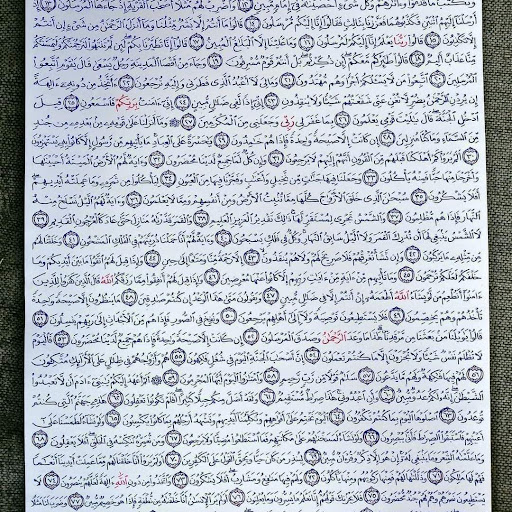 ونكتب ما قدموا وءاثرهم وكل شيء أحصينه في إمام مبين ١٢ واضرب لهم مثلا أصحب القرية إذ جاءها المرسلون ١٣ إذ
أرسلنا إليهم اثنين فكذبوهما فعززنا بثالث فقالوا إنا إليكم مرسلون ١٤ قالوا ما أنتم إلا بشر مثلنا وما أنزل الرحمن من شيء إن أنتم
إلا تكذبون ١٥ قالوا ربنا يعلم إنا إليكم لمرسلون ١٦ وما علينا إلا البلغ المبين ١٧ قالوا إنا تطيرنا بكم لئن لم تنتهوا لنرجمنكم وليمسنكم
منا عذاب أليم ١٨ قالوا طئركم معكم أئن ذكرتم بل أنتم قوم مسرفون ١٩ وجاء من أقصا المدينة رجل يسعى قال يقوم اتبعوا
المرسلين ٢٠ اتبعوا من لا يسئلكم أجرا وهم مهتدون ٢١ وما لي لا أعبد الذي فطرني وإليه ترجعون ٢٢ ءأتخذ من دونه ءالهة
إن يردن الرحمن بضر لا تغن عني شفعتهم شيئا ولا ينقذون ٢٣ إني إذا لفي ضلل مبين ٢٤ إني ءامنت بربكم فاسمعون ٢٥ قيل
ادخل الجنة قال يليت قومي يعلمون ٢٦ بما غفر لي ربي وجعلني من المكرمين ٢٧ وما أنزلنا على قومه من بعده من جند
من السماء وما كنا منزلين ٢٨ إن كانت إلا صيحة واحدة فإذا هم خمدون ٢٩ يحسرة على العباد ما يأتيهم من رسول إلا كانوا به يستهزءون
٣٠ ألم يروا كم أهلكنا قبلهم من القرون أنهم إليهم لا يرجعون ٣١ وإن كل لما جميع لدينا محضرون ٣٢ وءاية لهم الأرض الميتة أحيينها
وأخرجنا منها حبا فمنه يأكلون ٣٣ وجعلنا فيها جنت من نخيل وأعنب وفجرنا فيها من العيون ٣٤ ليأكلوا من ثمره وما عملته أيديهم
أفلا يشكرون ٣٥ سبحن الذي خلق الأزوج كلها مما تنبت الأرض ومن أنفسهم ومما لا يعلمون ٣٦ وءاية لهم اليل نسلخ منه
النهار فإذا هم مظلمون ٣٧ والشمس تجري لمستقر لها ذلك تقدير العزيز العليم ٣٨ والقمر قدرنه منازل حتى عاد كالعرجون القديم ٣٩
لا الشمس ينبغي لها أن تدرك القمر ولا اليل سابق النهار وكل في فلك يسبحون ٤٠ وءاية لهم أنا حملنا ذريتهم في الفلك المشحون ٤١ وخلقنا لهم
من مثله ما يركبون ٤٢ وإن نشأ نغرقهم فلا صريخ لهم ولا هم ينقذون ٤٣ إلا رحمة منا ومتعا إلى حين ٤٤ وإذا قيل لهم اتقوا ما بين أيديكم وما
خلفكم لعلكم ترحمون ٤٥ وما تأتيهم من ءاية من ءايت ربهم إلا كانوا عنها معرضين ٤٦ وإذا قيل لهم أنفقوا مما رزقكم الله قال الذين كفروا للذين
ءامنوا أنطعم من لو يشاء الله أطعمه إن أنتم إلا في ضلل مبين ٤٧ ويقولون متى هذا الوعد إن كنتم صدقين ٤٨ ما ينظرون إلا صيحة واحدة
تأخذهم وهم يخصمون ٤٩ فلا يستطيعون توصية ولا إلى أهلهم يرجعون ٥٠ ونفخ في الصور فإذا هم من الأجداث إلى ربهم ينسلون ٥١
قالوا يويلنا من بعثنا من مرقدنا هذا ما وعد الرحمن وصدق المرسلون ٥٢ إن كانت إلا صيحة واحدة فإذا هم جميع لدينا محضرون ٥٣ فاليوم
لا تظلم نفس شيئا ولا تجزون إلا ما كنتم تعملون ٥٤ إن أصحب الجنة اليوم في شغل فكهون ٥٥ هم وأزوجهم في ظلل على الأرائك متكئون
٥٦ لهم فيها فكهة ولهم ما يدعون ٥٧ سلم قولا من رب رحيم ٥٨ وامتزوا اليوم أيها المجرمون ٥٩ ألم أعهد إليكم يبني ءادم أن لا تعبدوا
الشيطن إنه لكم عدو مبين ٦٠ وأن اعبدوني هذا صرط مستقيم ٦١ ولقد أضل منكم جبلا كثيرا أفلم تكونوا تعقلون ٦٢ هذه جهنم التي كنتم
توعدون ٦٣ اصلوها اليوم بما كنتم تكفرون ٦٤ اليوم نختم على أفوههم وتكلمنا أيديهم وتشهد أرجلهم بما كانوا يكسبون ٦٥ ولو نشاء لطمسنا على
أعينهم فاستبقوا الصرط فأنى يبصرون ٦٦ ولو نشاء لمسخنهم على مكانتهم فما استطعوا مضيا ولا يرجعون ٦٧ ومن نعمره ننكسه في الخلق أفلا يعقلون ٦٨
وما علمنه الشعر وما ينبغي له إن هو إلا ذكر وقرءان مبين ٦٩ لينذر من كان حيا ويحق القول على الكفرين ٧٠ أولم يروا أنا خلقنا لهم مما عملت أيدينا أنعما
فهم لها ملكون ٧١ وذللنها لهم فمنها ركوبهم ومنها يأكلون ٧٢ ولهم فيها منفع ومشارب أفلا يشكرون ٧٣ واتخذوا من دون الله ءالهة لعلهم ينصرون ٧٤ لا
يستطيعون نصرهم وهم لهم جند محضرون ٧٥ فلا يحزنك قولهم إنا نعلم ما يسرون وما يعلنون ٧٦ أولم ير الإنسن أنا خلقنه من نطفة فإذا هو خصيم مبين ٧٧ وضرب لنا مثلا